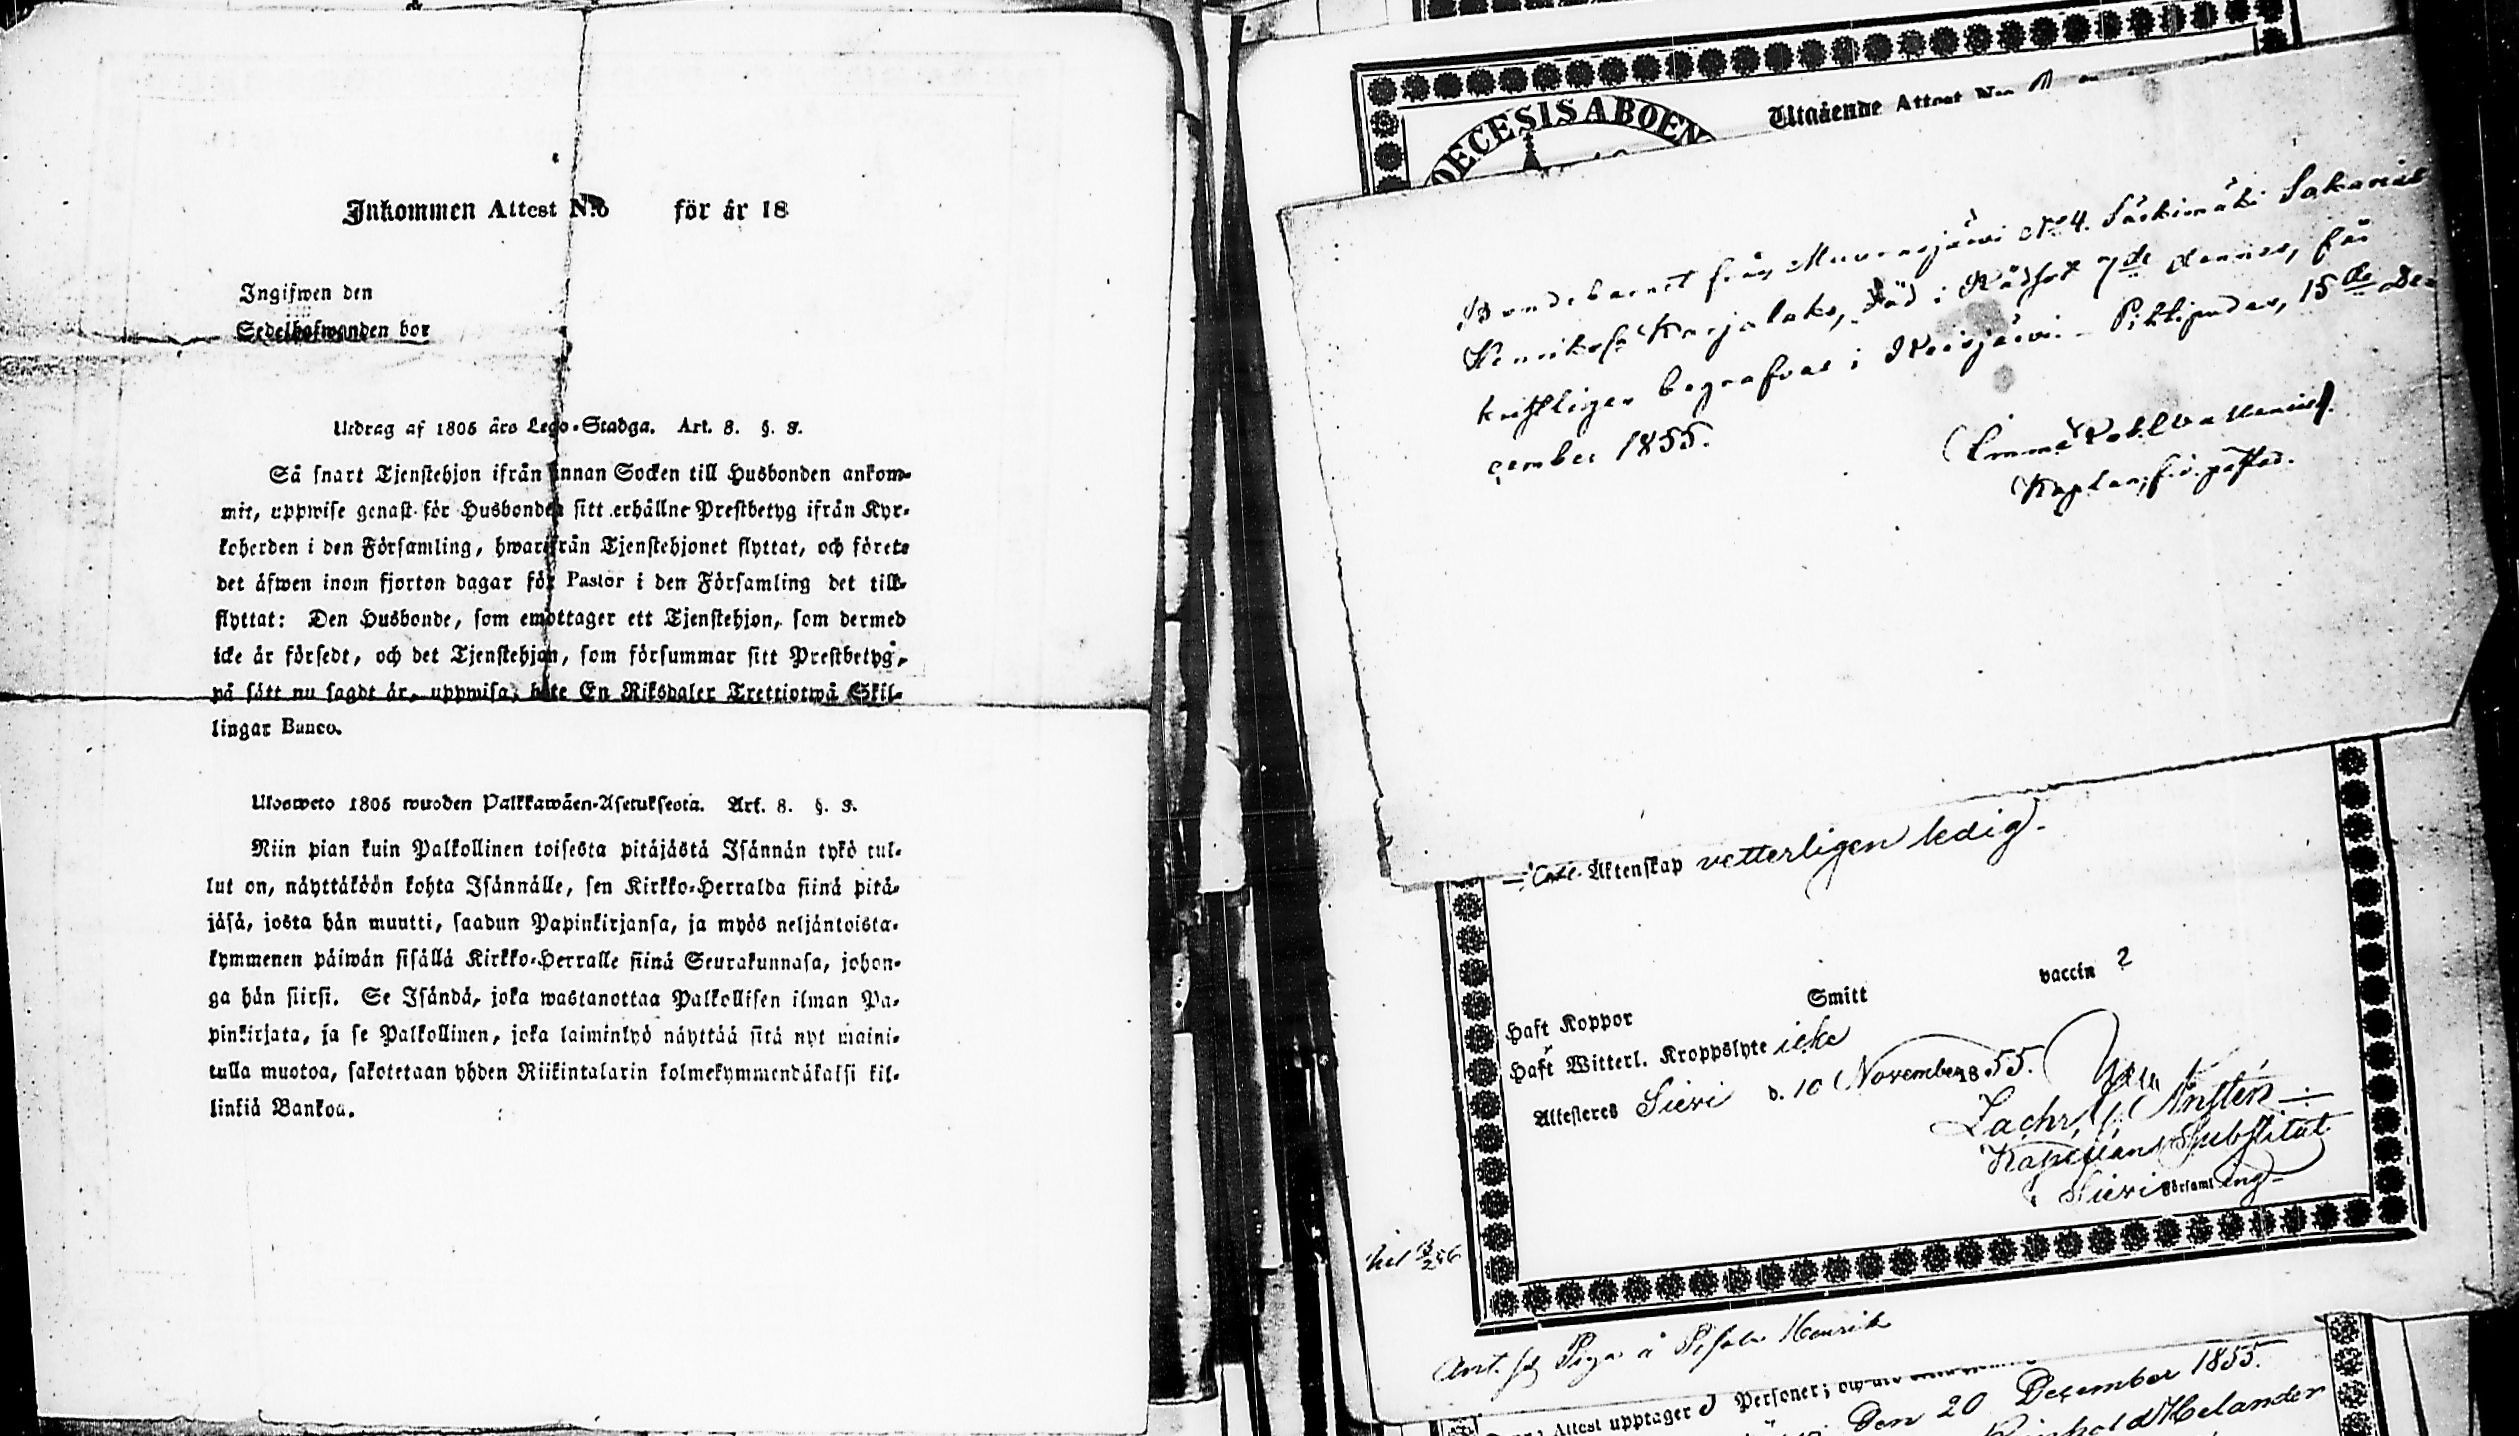 Inkommen Attest N:o för år 18
Ingifwen den
Sedelhafwanden bor
Utdrag af 1805 års Lego-Stadga. Art. 8. §. 3.
Så snart Tjenstehjon ifrån annan Socken till Husbonden ankom-
mit, uppwise genast för Husbonden sitt erhållne Prestbetyg ifrån Kyr-
koherden i den Församling, hwarifrån Tjenstehjonet flyttat, och förete
det äfwen inom fjorton dagar för Pastor i den Församling det till-
flyttat: Den Husbonde, som emottager ett Tjenstehjon, som dermed
icke är försedt, och det Tjenstehjon, som försummar sitt Prestbetyg,
på sätt nu sagdt är, uppwisa, böte En Riksdaler Trettiotwå Skil-
lingar Banco.
Ulosweto 1805 wuoden Palkkawäen-Asetuksesta. Art. 8. §. 3.
Niin pian kuin Palkollinen toisesta pitäjästä Isännän tykö tul-
lut on, näyttäköön kohta Isännälle, sen Kirkko-Herralda siinä pitä-
jäsä, josta hän muutti, saadun Papinkirjansa, ja myös neljäntoista-
kymmenen päiwän sisällä Kirkko-Herralle siinä Seurakunnasa, johon-
ga hän siirsi. Se Isändä, joka wastanottaa Palkollisen ilman Pa-
pinkirjata, ja se Palkollinen, joka laiminlyö näyttää sitä nyt maini-
tulla muotoa, sakotetaan yhden Riikintalarin kolmekymmendäkaksi kil-
linkiä Bankoa.
DIOECESIS ABOEN
Utgående Attest N:o
Bondebarnet från Muurasjärvi N:o 4. Särkimäki Sakarias
Henriksson Karjalaks, död i Rödsot 7de dennes, får
kristligen begrafvas i Reisjärvi. - Pihtipudas, 15de De-
cember 1855.
Kaplan, förrättad.
Äktenskap vetterligen ledig.
Haft Koppor Smitt vaccin 2
Haft Witterl. Kroppslyte icke
Attesteres Sievi d. 10 November 1855.
Zachr.
Kapellans Substitut
Sievi Församling
Piga Henrik
Attest upptager Personer;
Den 20 December 1855.
Helander